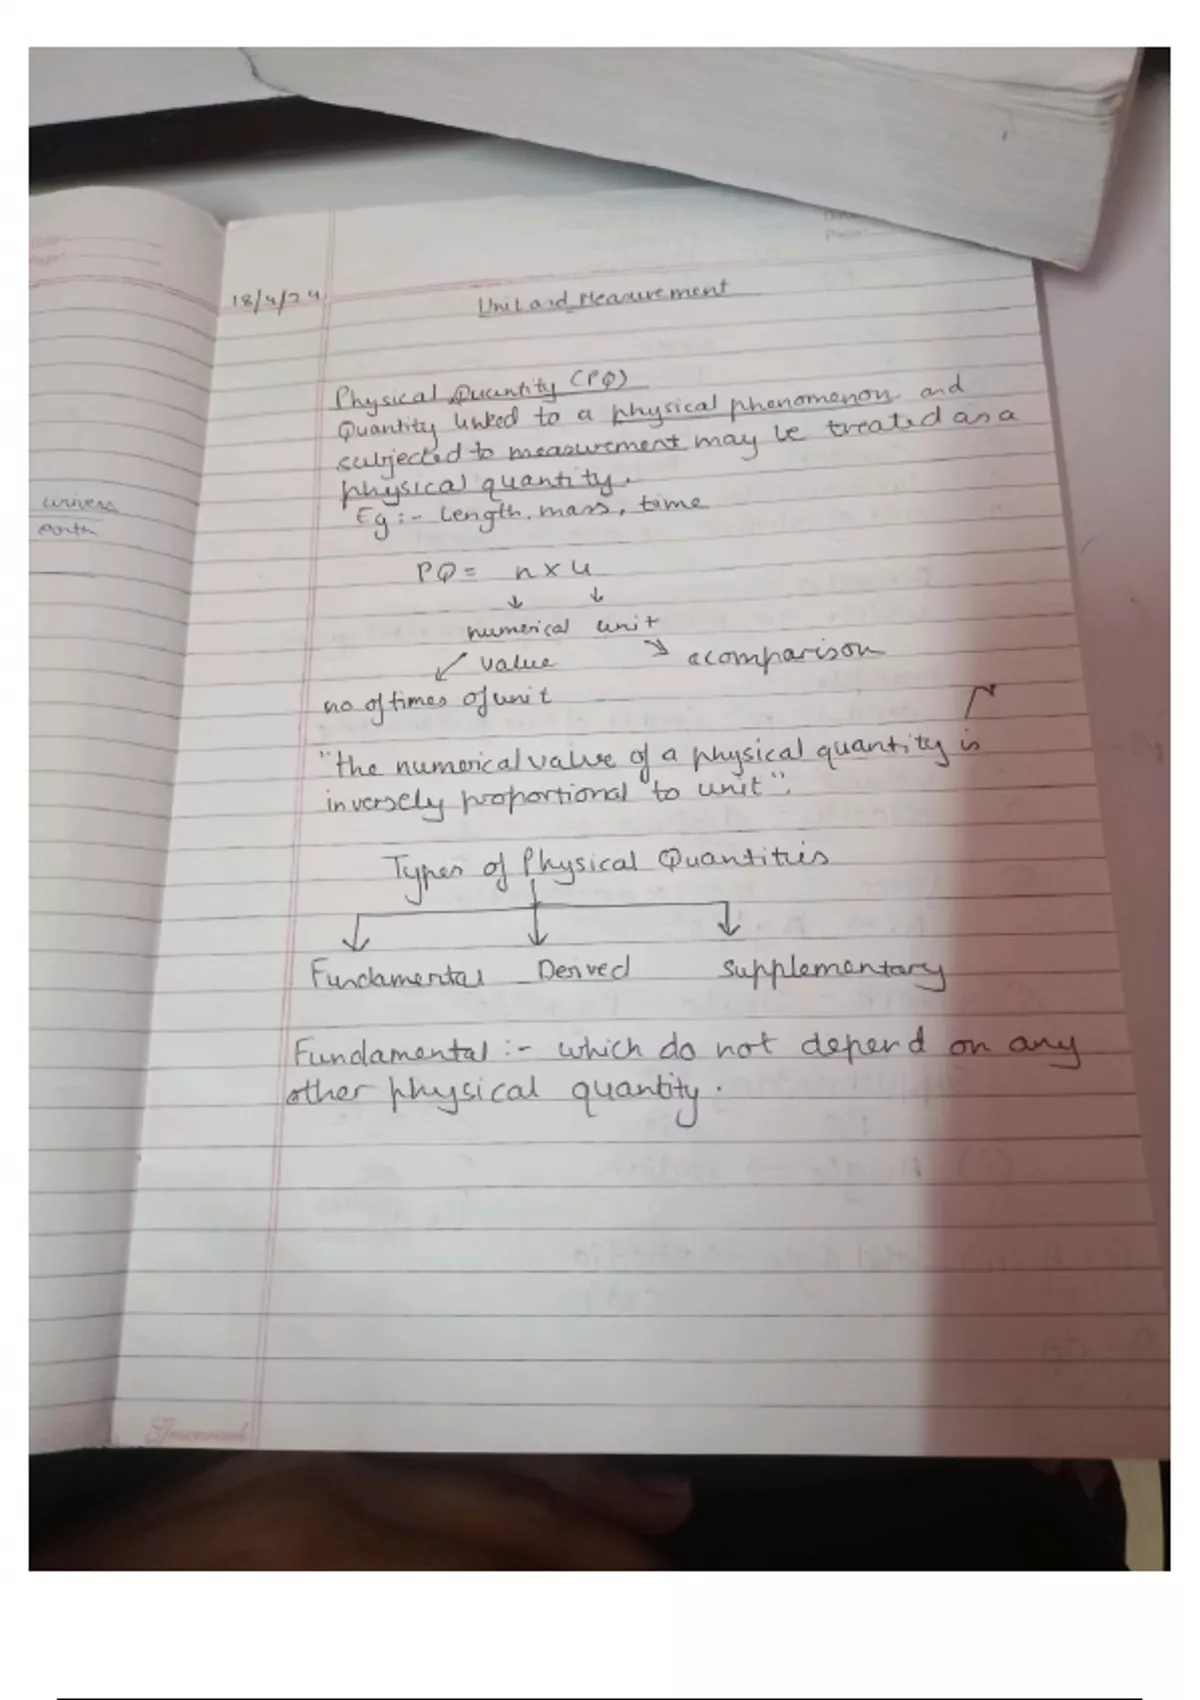 18/4/24
Unit and Measurement
Physical Quantity (PQ)
Quantity linked to a physical phenomenon and
subjected to measurement may be treated as a
physical quantity.
Eg :- Length, mass, time
PQ = n x u
↓ ↓
numerical unit
↙ value ↘ a comparison
no of times of unit
"the numerical value of a physical quantity is
inversely proportional to unit".
Types of Physical Quantities
Fundamental Derived Supplementary
Fundamental :- which do not depend on any
other physical quantity.
univers
earth